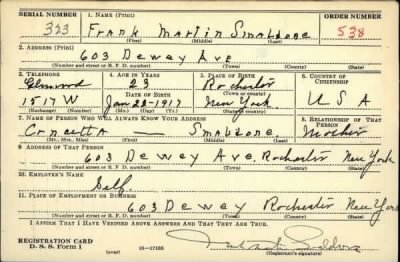 SERIAL NUMBER 1. NAME (Print) ORDER NUMBER
323 Frank Martin Smaldone 538
(First) (Middle) (Last)
2. ADDRESS (Print)
603 Dewey Ave
(Number and street or R. F. D. number) (Town) (County) (State)
3. TELEPHONE 4. AGE IN YEARS 5. PLACE OF BIRTH 6. COUNTRY OF CITIZENSHIP
Glenwood 23 Rochester
DATE OF BIRTH (Town or county)
1517 W Jan 28-1917 New York U S A
(Exchange) (Number) (Mo.) (Day) (Yr.) (State or country)
7. NAME OF PERSON WHO WILL ALWAYS KNOW YOUR ADDRESS 8. RELATIONSHIP OF THAT PERSON
— Smaldone Mother
(Mr., Mrs., Miss) (First) (Middle) (Last)
9. ADDRESS OF THAT PERSON
603 Dewey Ave. Rochester New York
(Number and street or R. F. D. number) (Town) (County) (State)
10. EMPLOYER'S NAME
Self
11. PLACE OF EMPLOYMENT OR BUSINESS
603 Dewey Rochester New York
(Number and street or R. F. D. number) (Town) (County) (State)
I AFFIRM THAT I HAVE VERIFIED ABOVE ANSWERS AND THAT THEY ARE TRUE.
REGISTRATION CARD
D. S. S. Form 1 (over) 16—17105 (Registrant's signature)